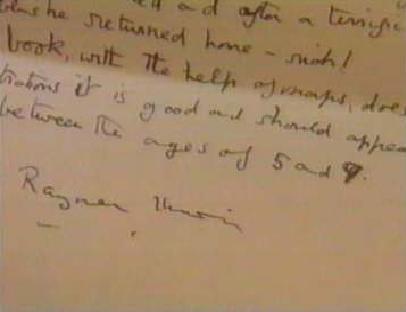 and after a terrific
he returned home - rich!
book, with the help of maps, does
it is good and should appea
between the ages of 5 and 9.
Rayner Unwin